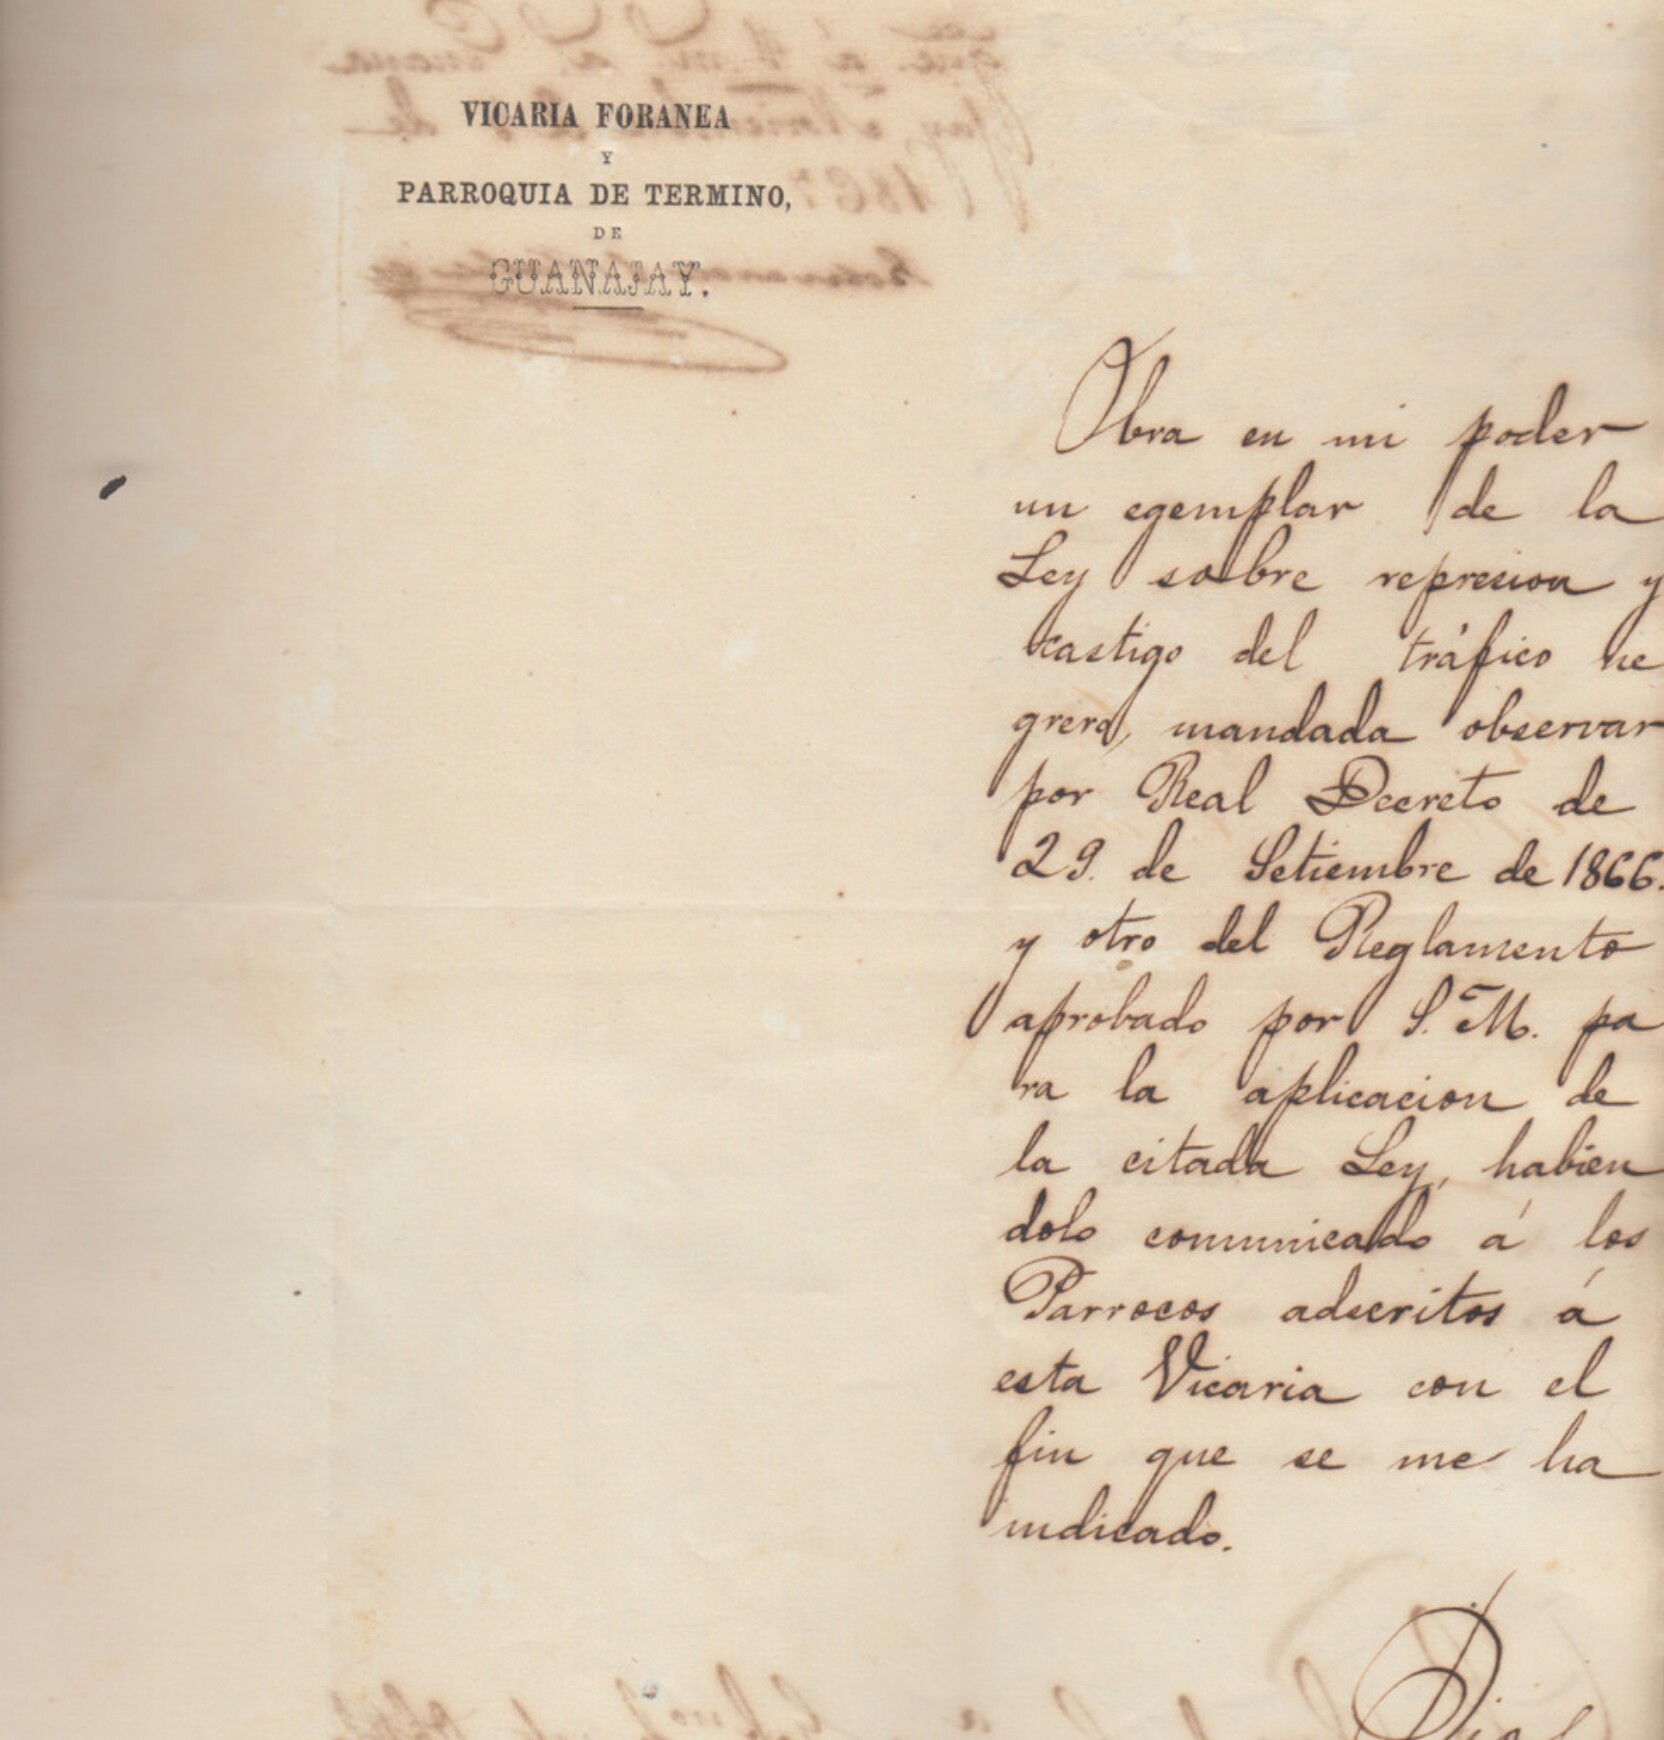 VICARIA FORANEA
Y
PARROQUIA DE TERMINO,
DE
GUANAJAY.
Obra en mi poder
un egemplar de la
Ley sobre represion y
castigo del tráfico ne
grero, mandada observar
por Real Decreto de
29. de Setiembre de 1866.
y otro del Reglamento
aprobado por S. M. pa
ra la aplicacion de
la citada Ley, habien
dolo comunicado á los
Parrocos adscritos á
esta Vicaria con el
fin que se me ha
indicado.
Dios